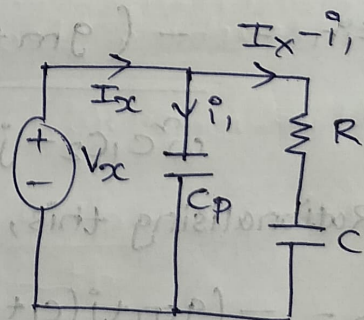 Ix-i,
Ix
i,
R
+
Vx
-
Cp
C